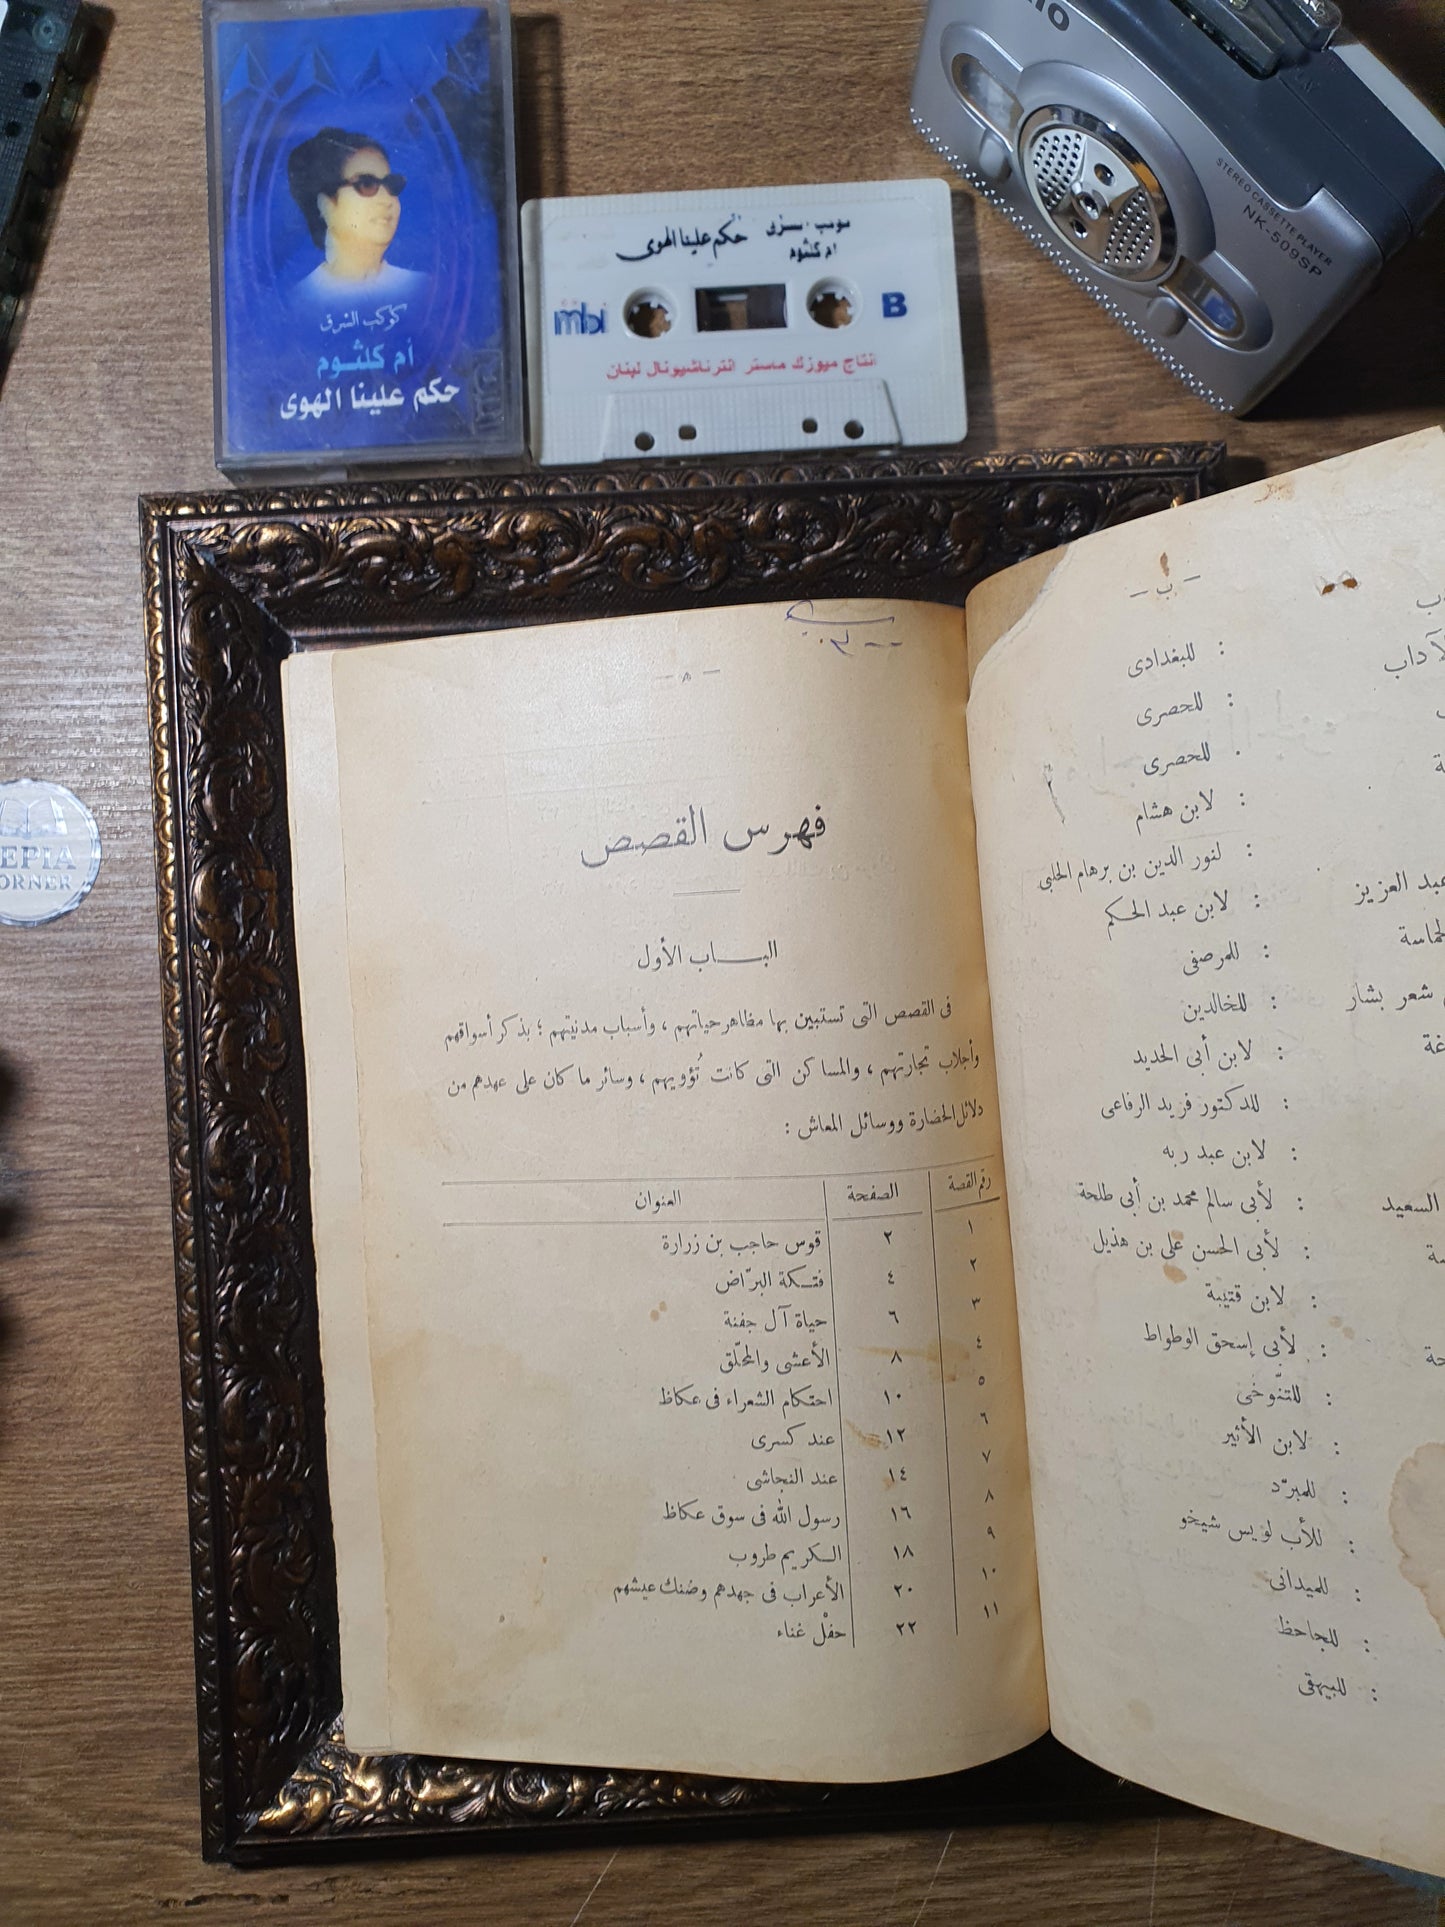 كوكب الشرق
أم كلثوم
حكم علينا الهوى
حكم علينا الهوى
ام كلثوم
mbi
B
انتاج ميوزك ماستر انترناشيونال لبنان
IO
STEREO CASSETTE PLAYER
NK-509SP
EPIA
ORNER
— ه —
فهرس القصص
البــاب الأول
فى القصص التى تستبين بها مظاهر حياتهم ، وأسباب مدنيتهم ؛ بذكر أسواقهم
وأجلاب تجارتهم ، والمساكن التى كانت تُؤويهم ، وسائر ما كان على عهدهم من
دلائل الحضارة ووسائل المعاش :
رقم القصة الصفحة العنوان
١ ٢ قوس حاجب بن زرارة
٢ ٤ فتكة البرّاض
٣ ٦ حياة آل جفنة
٤ ٨ الأعشى والمحلّق
٥ ١٠ احتكام الشعراء فى عكاظ
٦ ١٢ عند كسرى
٧ ١٤ عند النجاشى
٨ ١٦ رسول الله فى سوق عكاظ
٩ ١٨ الكريم طروب
١٠ ٢٠ الأعراب فى جهدهم وضنك عيشهم
١١ ٢٢ حفْل غناء
— ب —
: للبغدادى
الآداب : للحصرى
: للحصرى
: لابن هشام
: لنور الدين بن برهام الحلبى
عبد العزيز : لابن عبد الحكم
: للمرصفى
شعر بشار : للخالدين
: لابن أبى الحديد
: للدكتور فريد الرفاعى
: لابن عبد ربه
السعيد : لأبى سالم محمد بن أبى طلحة
: لأبى الحسن على بن هذيل
: لابن قتيبة
: لأبى إسحق الوطواط
: للتنّوخى
: لابن الأثير
: للمبرّد
: للأب لويس شيخو
: للميدانى
: للجاحظ
: للبيهقى